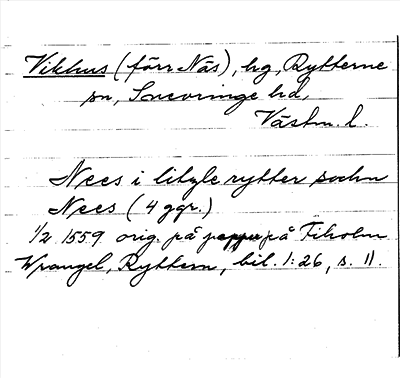 Vikhus (förr Näs), hg, Rytterne
sn, Snevringe hd,
Västm. l.
Nees i litzle rytter sochn
Nees (4 ggr.)
1/2 1559 orig. på papper på Tiholm
Wrangel, Ryttern, bil. 1:26, s. 11.